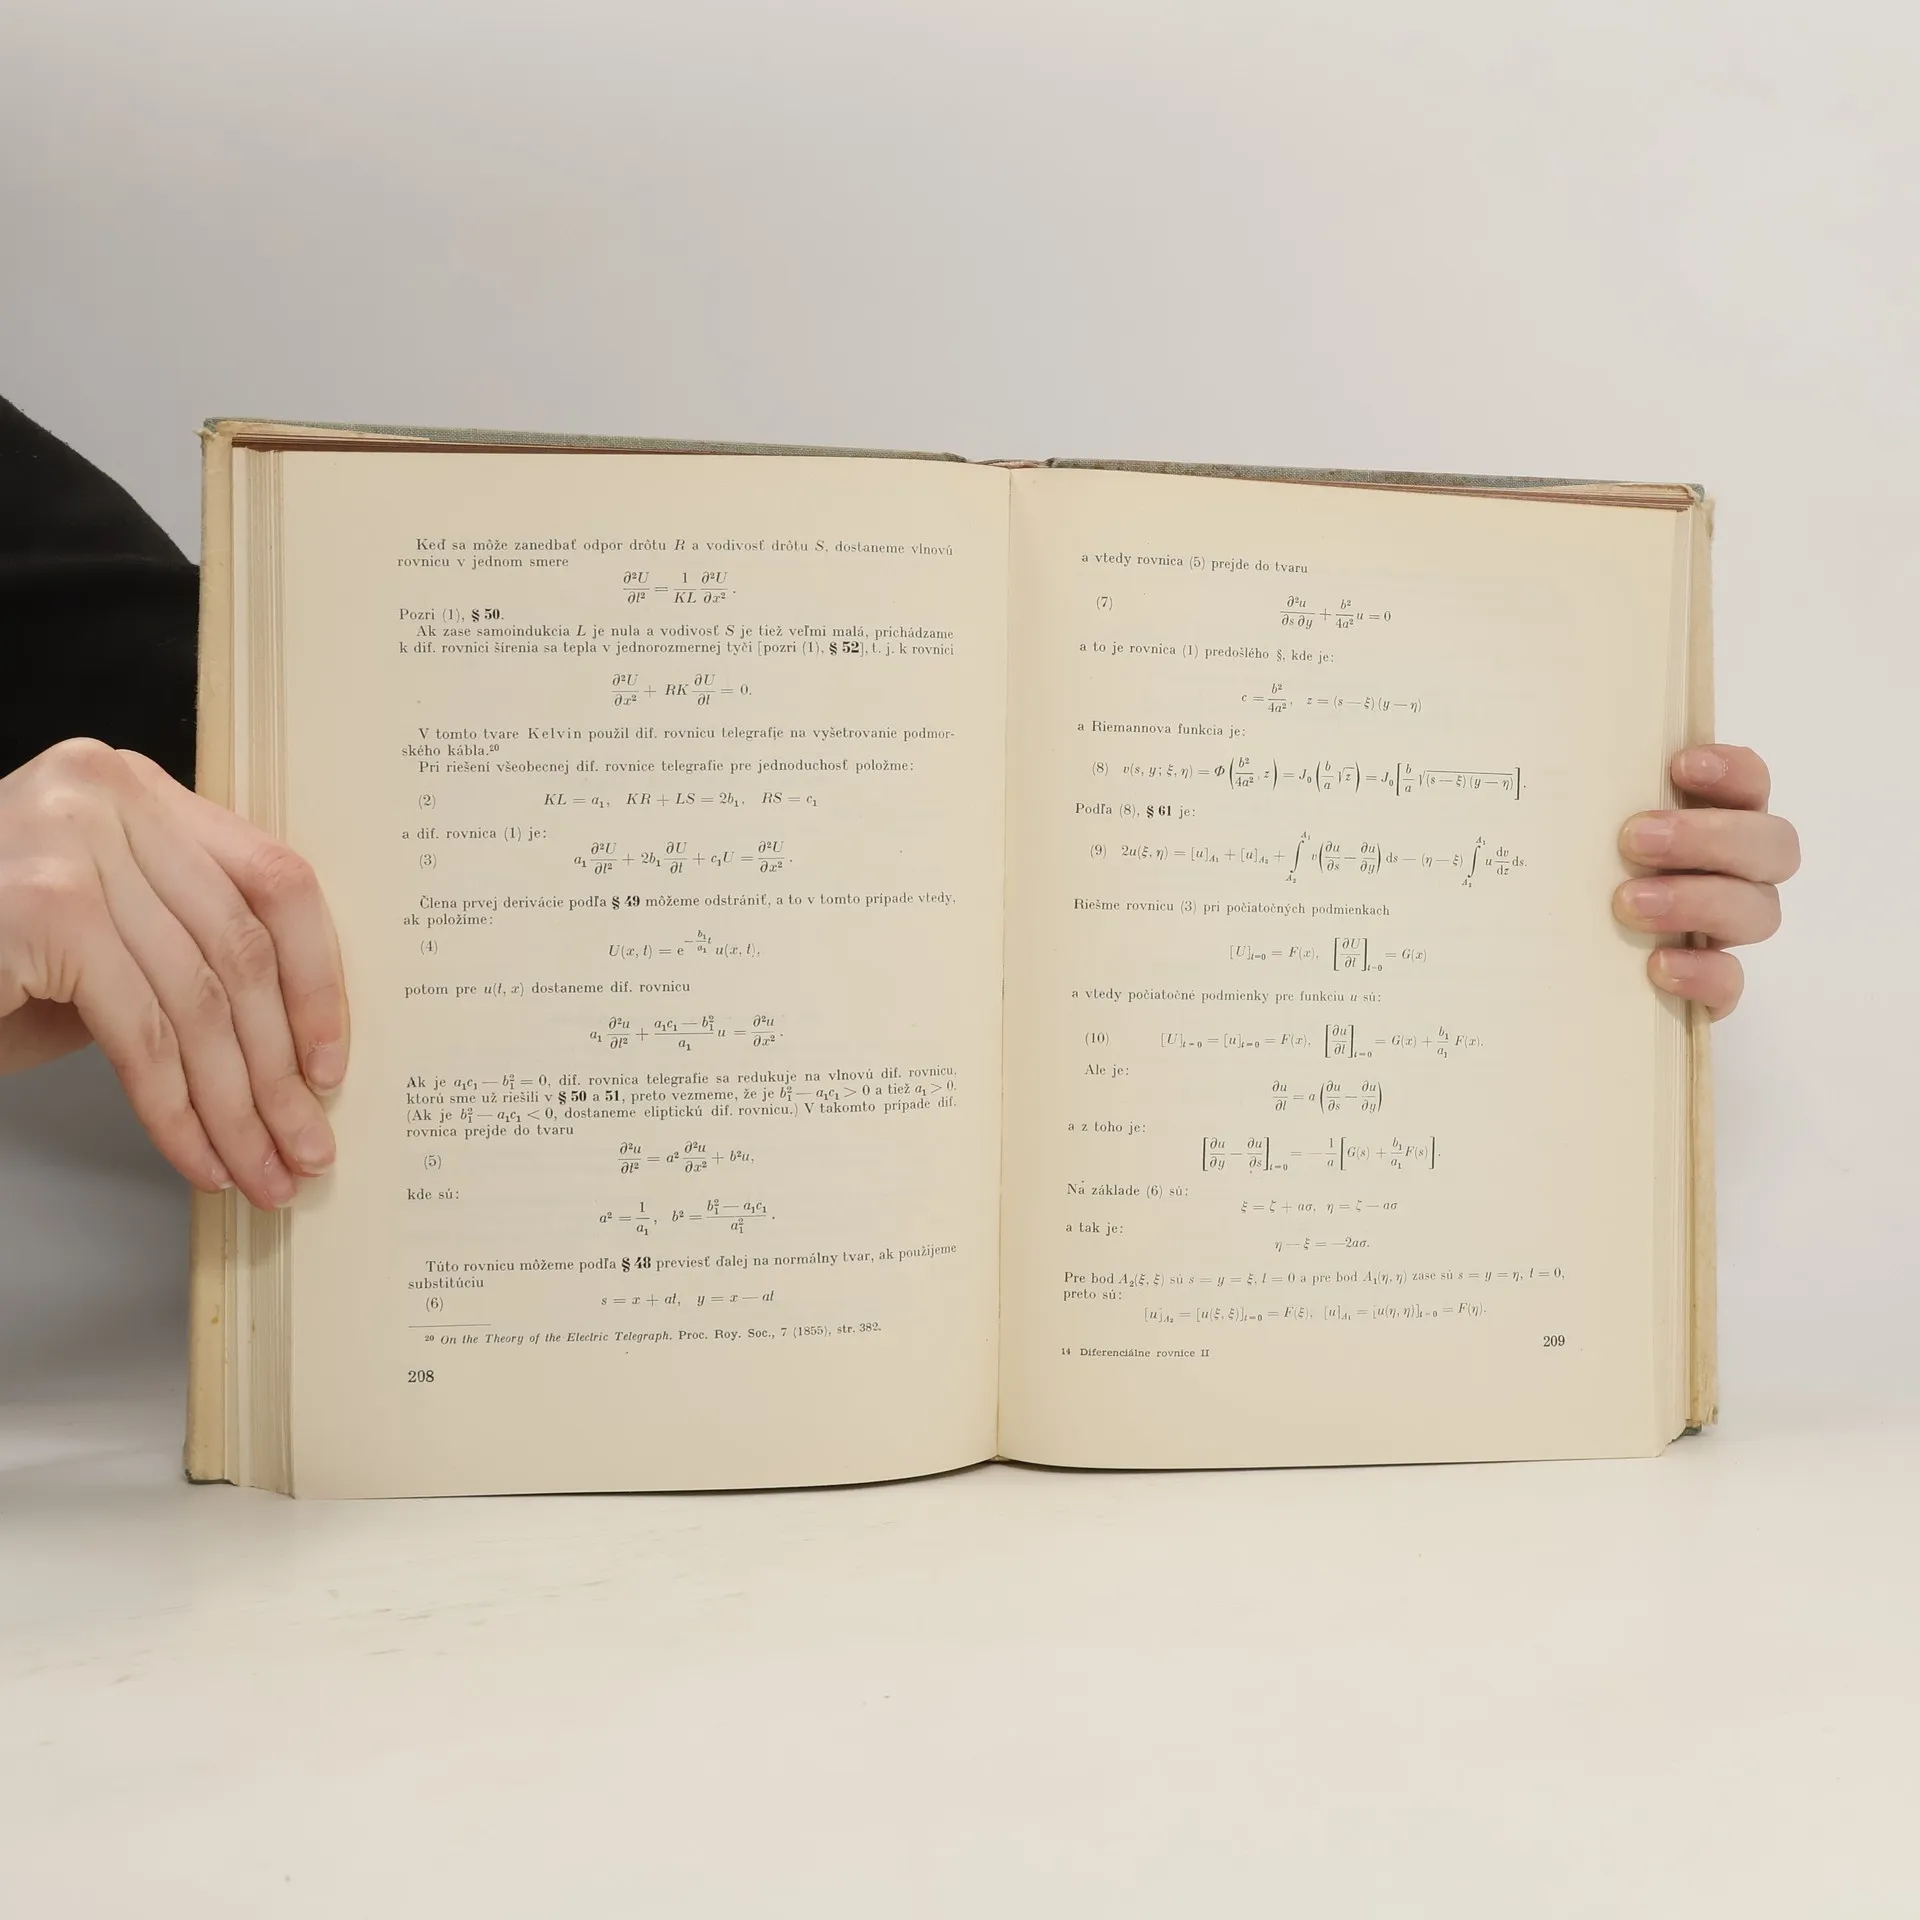 Keď sa môže zanedbať odpor drôtu R a vodivosť drôtu S, dostaneme vlnovú
rovnicu v jednom smere
∂²U/∂t² = 1/KL ∂²U/∂x² .
Pozri (1), § 50.
Ak zase samoindukcia L je nula a vodivosť S je tiež veľmi malá, prichádzame
k dif. rovnici šírenia sa tepla v jednorozmernej tyči [pozri (1), § 52], t. j. k rovnici
∂²U/∂x² + RK ∂U/∂t = 0.
V tomto tvare Kelvin použil dif. rovnicu telegrafie na vyšetrovanie podmor-
ského kábla.²⁰
Pri riešení všeobecnej dif. rovnice telegrafie pre jednoduchosť položme:
(2) KL = a₁, KR + LS = 2b₁, RS = c₁
a dif. rovnica (1) je:
(3) a₁ ∂²U/∂t² + 2b₁ ∂U/∂t + c₁U = ∂²U/∂x² .
Člena prvej derivácie podľa § 49 môžeme odstrániť, a to v tomto prípade vtedy,
ak položíme:
(4) U(x, t) = e^(−(b₁/a₁)t) u(x, t),
potom pre u(t, x) dostaneme dif. rovnicu
a₁ ∂²u/∂t² + (a₁c₁ — b₁²)/a₁ u = ∂²u/∂x² .
Ak je a₁c₁ — b₁² = 0, dif. rovnica telegrafie sa redukuje na vlnovú dif. rovnicu,
ktorú sme už riešili v § 50 a 51, preto vezmeme, že je b₁² — a₁c₁ > 0 a tiež a₁ > 0.
(Ak je b₁² — a₁c₁ < 0, dostaneme eliptickú dif. rovnicu.) V takomto prípade dif.
rovnica prejde do tvaru
(5) ∂²u/∂t² = a² ∂²u/∂x² + b²u,
kde sú:
a² = 1/a₁ , b² = (b₁² — a₁c₁)/a₁² .
Túto rovnicu môžeme podľa § 48 previesť ďalej na normálny tvar, ak použijeme
substitúciu
(6) s = x + at, y = x — at
²⁰ On the Theory of the Electric Telegraph. Proc. Roy. Soc., 7 (1855), str. 382.
208
a vtedy rovnica (5) prejde do tvaru
(7) ∂²u/∂s ∂y + b²/4a² u = 0
a to je rovnica (1) predošlého §, kde je:
c = b²/4a² , z = (s — ξ) (y — η)
a Riemannova funkcia je:
(8) v(s, y; ξ, η) = Φ (b²/4a² , z) = J₀ (b/a √z) = J₀ [b/a √((s — ξ) (y — η))] .
Podľa (8), § 61 je:
(9) 2u(ξ, η) = [u]A₁ + [u]A₂ + ∫A₂^A₁ v(∂u/∂s — ∂u/∂y) ds — (η — ξ) ∫A₂^A₁ u dv/dz ds.
Riešme rovnicu (3) pri počiatočných podmienkach
[U]t=0 = F(x), [∂U/∂t]t=0 = G(x)
a vtedy počiatočné podmienky pre funkciu u sú:
(10) [U]t=0 = [u]t=0 = F(x), [∂u/∂t]t=0 = G(x) + b₁/a₁ F(x).
Ale je:
∂u/∂t = a (∂u/∂s — ∂u/∂y)
a z toho je:
[∂u/∂y — ∂u/∂s]t=0 = — 1/a [G(s) + b₁/a₁ F(s)] .
Na základe (6) sú:
ξ = ζ + aσ, η = ζ — aσ
a tak je:
η — ξ = —2aσ.
Pre bod A₂(ξ, ξ) sú s = y = ξ, t = 0 a pre bod A₁(η, η) zase sú s = y = η, t = 0,
preto sú:
[u]A₂ = [u(ξ, ξ)]t=0 = F(ξ), [u]A₁ = [u(η, η)]t=0 = F(η).
209
14 Diferenciálne rovnice II